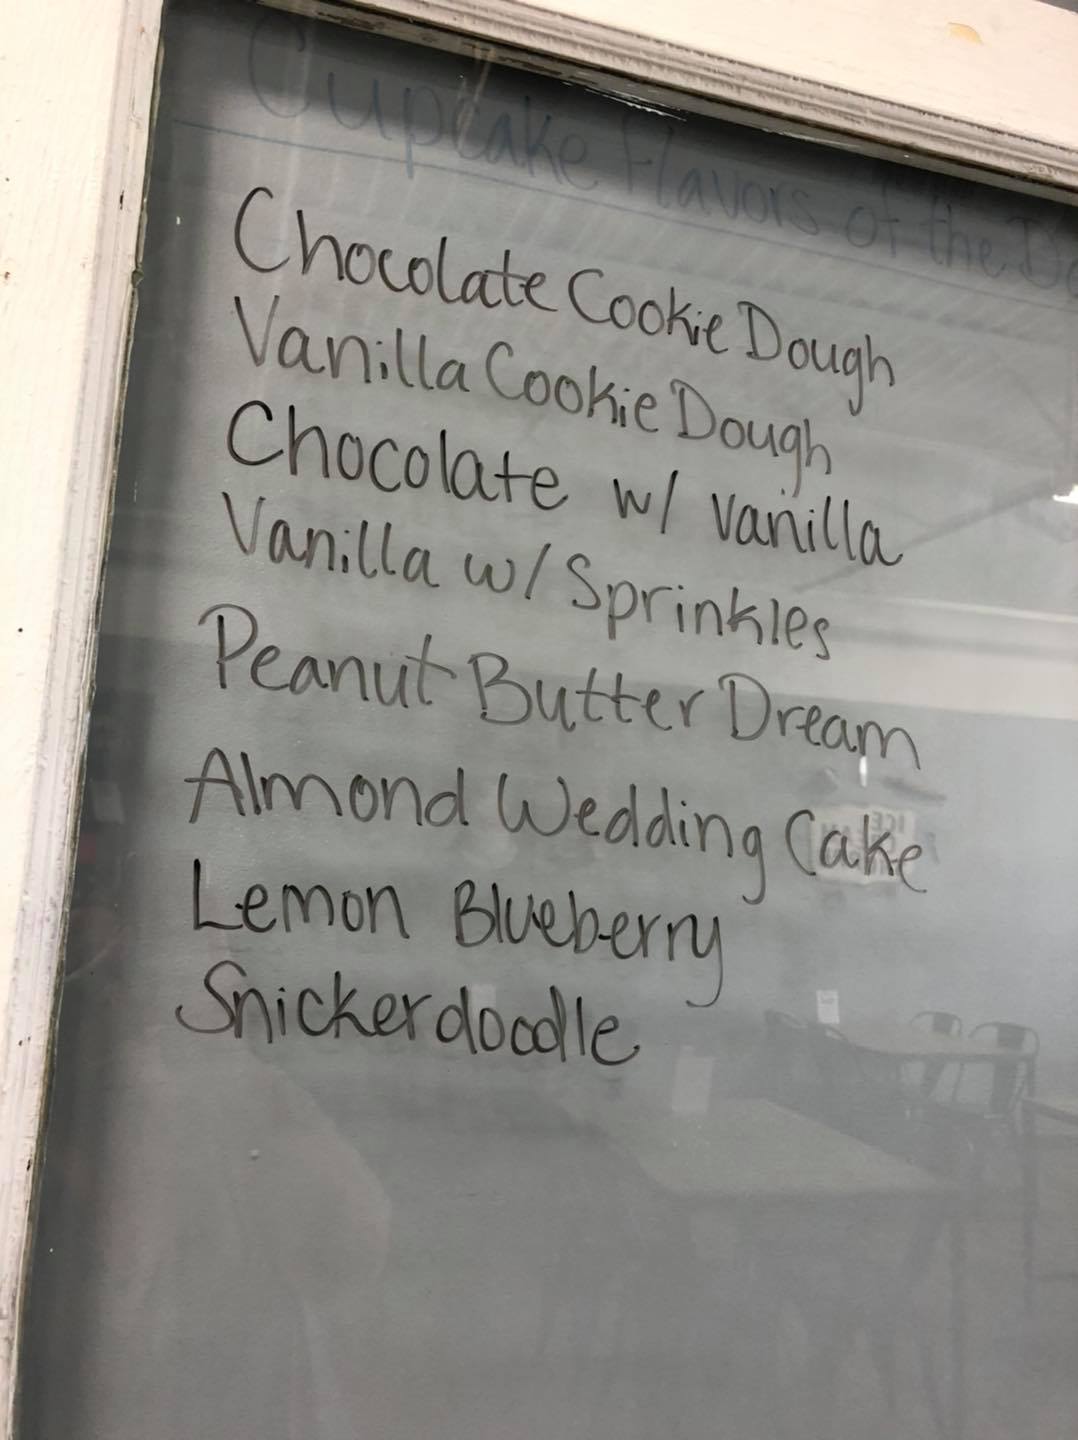 Cupcake Flavors of the
Chocolate Cookie Dough
Vanilla Cookie Dough
Chocolate w/ Vanilla
Vanilla w/ Sprinkles
Peanut Butter Dream
Almond Wedding Cake
Lemon Blueberry
Snickerdoodle